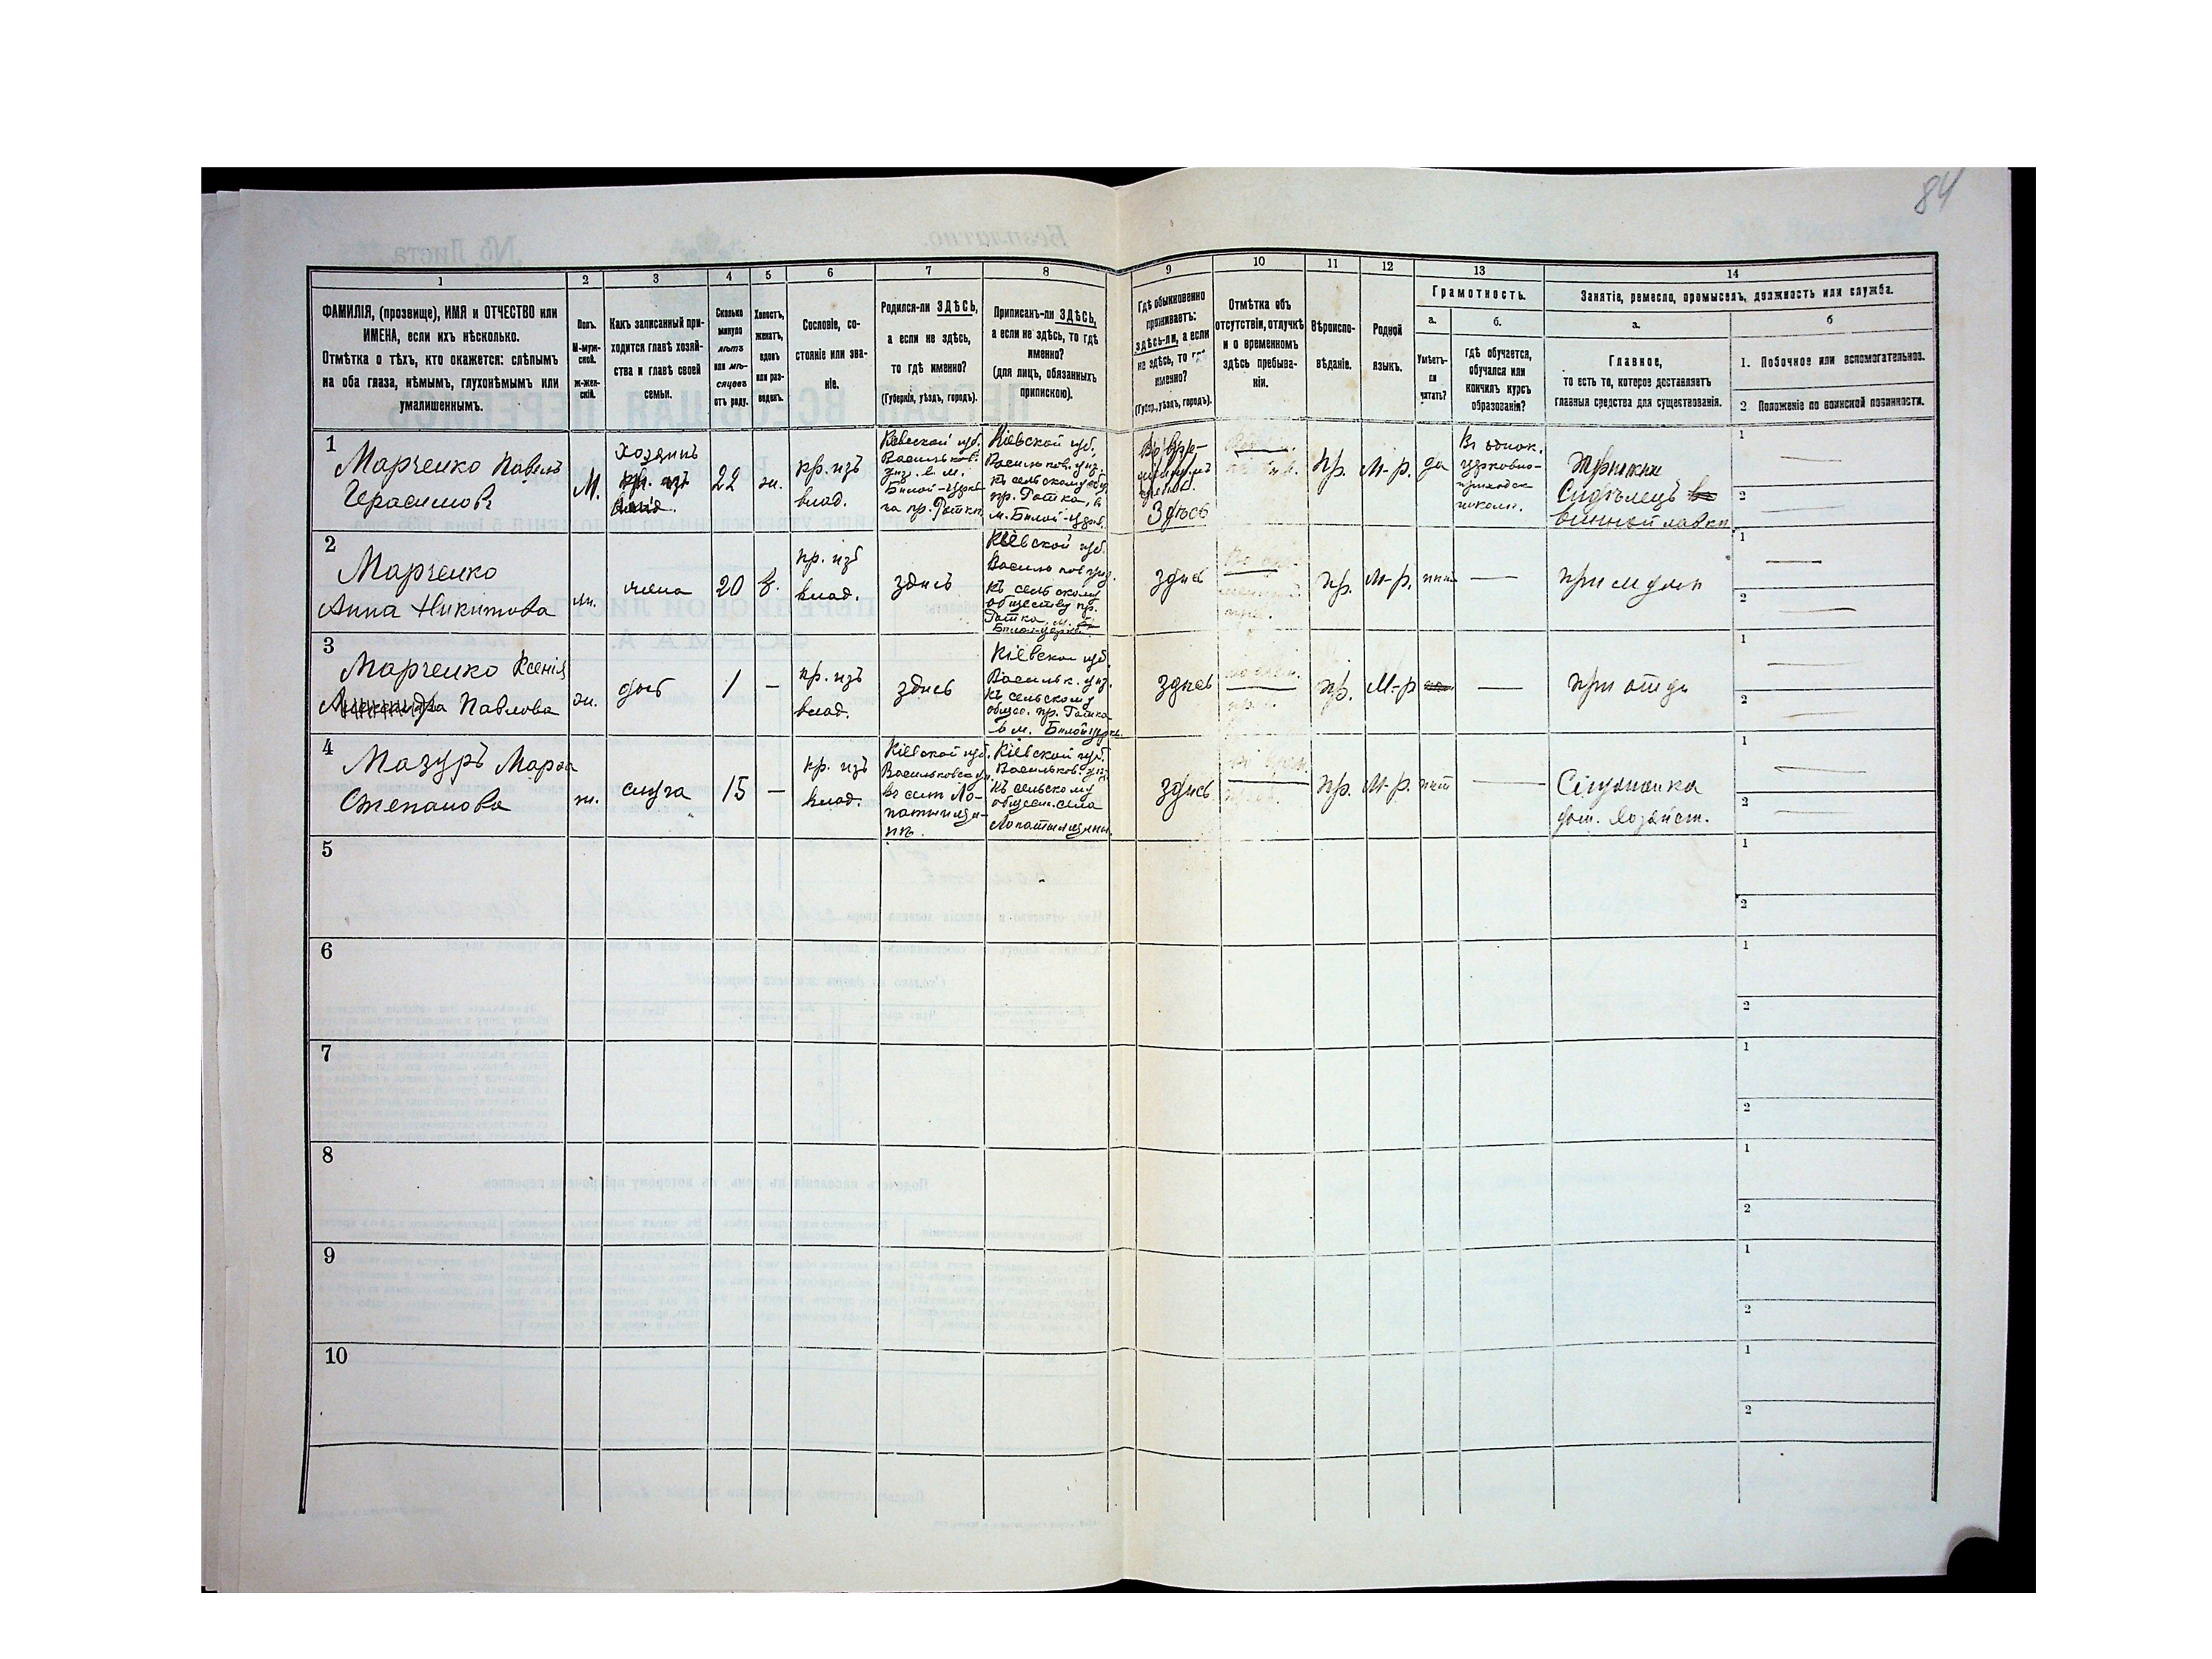 84
1
2
3
4
5
6
7
8
9
10
11
12
13
14
ФАМИЛІЯ, (прозвище), ИМЯ и ОТЧЕСТВО или
ИМЕНА, если ихъ нѣсколько.
Отмѣтка о тѣхъ, кто окажется: слѣпымъ
на оба глаза, нѣмымъ, глухонѣмымъ или
умалишеннымъ.
Полъ.
М-муж-
ской.
ж-жен-
скій.
Какъ записанный при-
ходится главѣ хозяй-
ства и главѣ своей
семьи.
Сколько
минуло
лѣтъ
или мѣ-
сяцевъ
отъ роду.
Холостъ,
женатъ,
вдовъ
или раз-
веденъ.
Сословіе, со-
стояніе или зва-
ніе.
Родился-ли ЗДѢСЬ,
а если не здѣсь,
то гдѣ именно?
(Губернія, уѣздъ, городъ).
Приписанъ-ли ЗДѢСЬ,
а если не здѣсь, то гдѣ
именно?
(для лицъ, обязанныхъ
припискою).
Гдѣ обыкновенно
проживаетъ:
здѣсь-ли, а если
не здѣсь, то гдѣ
именно?
(Губер., уѣздъ, городъ).
Отмѣтка объ
отсутствіи, отлучкѣ
и о временномъ
здѣсь пребыва-
ніи.
Вѣроиспо-
вѣданіе.
Родной
языкъ.
Грамотность.
а.
Умѣетъ-
ли
читать?
б.
гдѣ обучается,
обучался или
кончилъ курсъ
образованія?
Занятіе, ремесло, промыселъ, должность или служба.
а.
Главное,
то есть то, которое доставляетъ
главныя средства для существованія.
б
1. Побочное или вспомогательное.
2 Положеніе по воинской повинности.
1
Марченко Павелъ
Герасимовъ
М.
Хозяинъ
22
ж.
кр. изъ
влад.
Кіевской губ.
Васильков.
уѣз. в м.
Бѣлой-церк-
Кіевской губ,
Васильков. уѣз.
къ сельскому
пр. Ротка, в
м. Бѣлой-церк.
Здѣсь
пр.
М-р.
да
церковно-
приходск
школѣ.
Сидѣлецъ
винной лавки
1
2
2
Марченко
Анна Никитова
ж.
жена
20
з.
кр. изъ
влад.
здѣсь
Кіевской губ.
къ сельскому
обществу пр.
Ротка, м.
Бѣлой-церкви
здѣсь
пр.
М-р.
нѣтъ
при мужѣ
1
2
3
Марченко Ксенія
Павлова
ж.
дочь
1
кр. изъ
влад.
здѣсь
Кіевской губ.
Васильк. уѣз.
къ сельскому
общес. пр. Ротка
в м. Бѣлой церк.
здѣсь
пр.
М-р
при отцѣ
1
2
4
Мазуръ Марѳа
Степанова
ж.
слуга
15
кр. изъ
влад.
Кіевской губ.
во селѣ Ло-
Кіевской губ.
Васильков. уѣз.
къ сельскому
общест. села
здѣсь
пр.
М-р.
нѣтъ
дом. хозяйст.
1
2
5
1
2
6
1
2
7
1
2
8
1
2
9
1
2
10
1
2